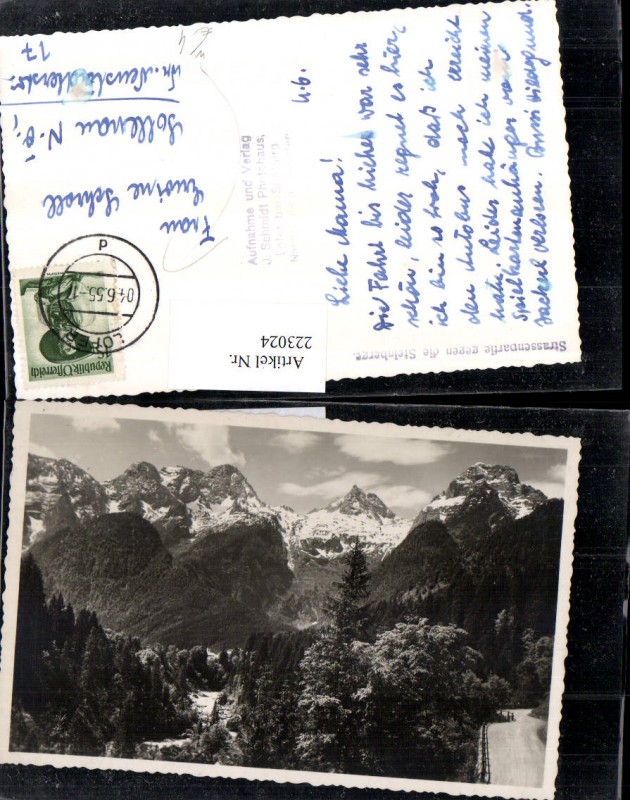 4.6.
Liebe Mama!
Die Fahrt bis hieher war sehr
schön, leider regnet es hier,
ich bin so froh, daß ich
den Autobus noch erreicht
hab. Leider hab ich meinen
verloren. Bussi
Frau
Schroll
Sollenau N.Ö.,
Wr. Neustädterstr.
17
Aufnahme und Verlag
J. Schmidt Photohaus,
Strassenpartie gegen die Steinberge.
04.6.55
LOFER
Republik Österreich
Artikel Nr.
223024